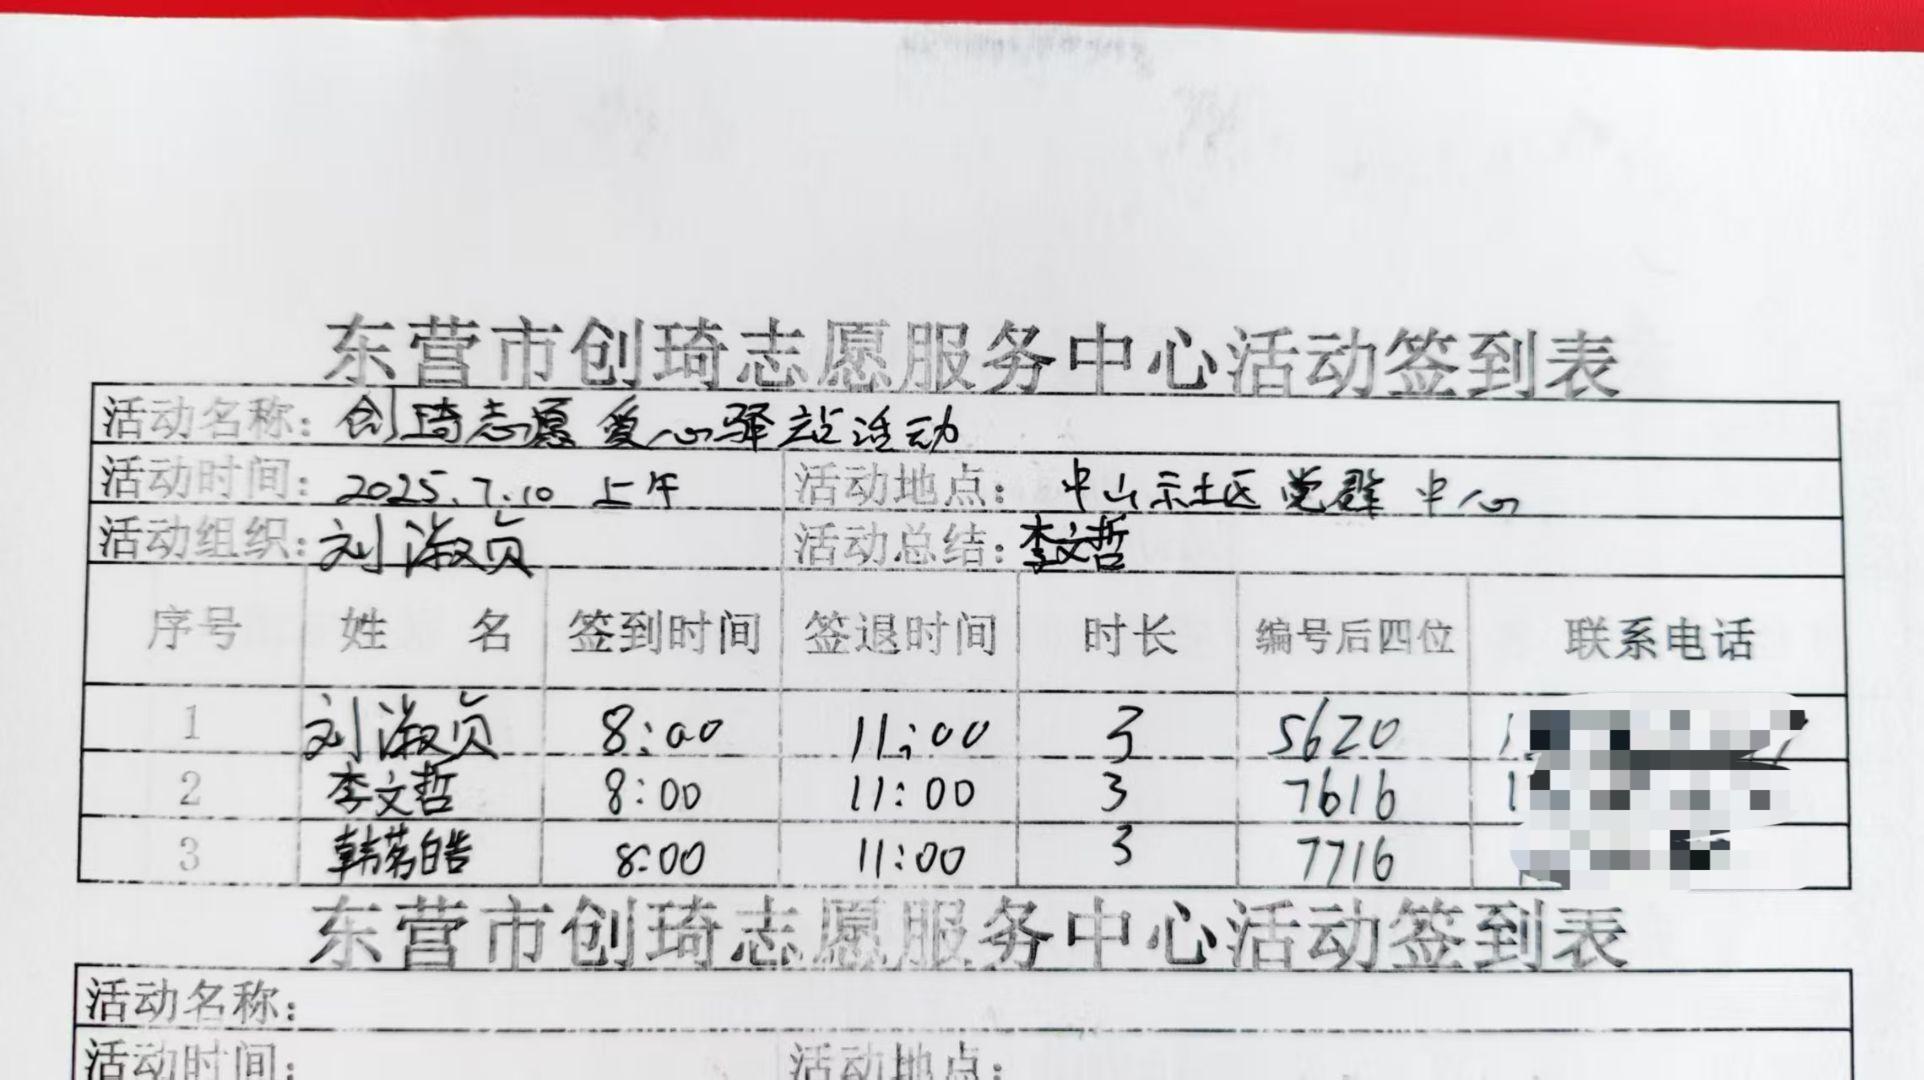 东营市创琦志愿服务中心活动签到表
活动名称：创琦志愿爱心驿站活动
活动时间：2025.7.10 上午 活动地点：中山社区党群中心
活动组织：刘淑贞 活动总结：李文哲
序号 姓 名 签到时间 签退时间 时长 编号后四位 联系电话
1 刘淑贞 8:00 11:00 3 5620 1
2 李文哲 8:00 11:00 3 7616 1
3 韩茗皓 8:00 11:00 3 7716
东营市创琦志愿服务中心活动签到表
活动名称：
活动时间： 活动地点：